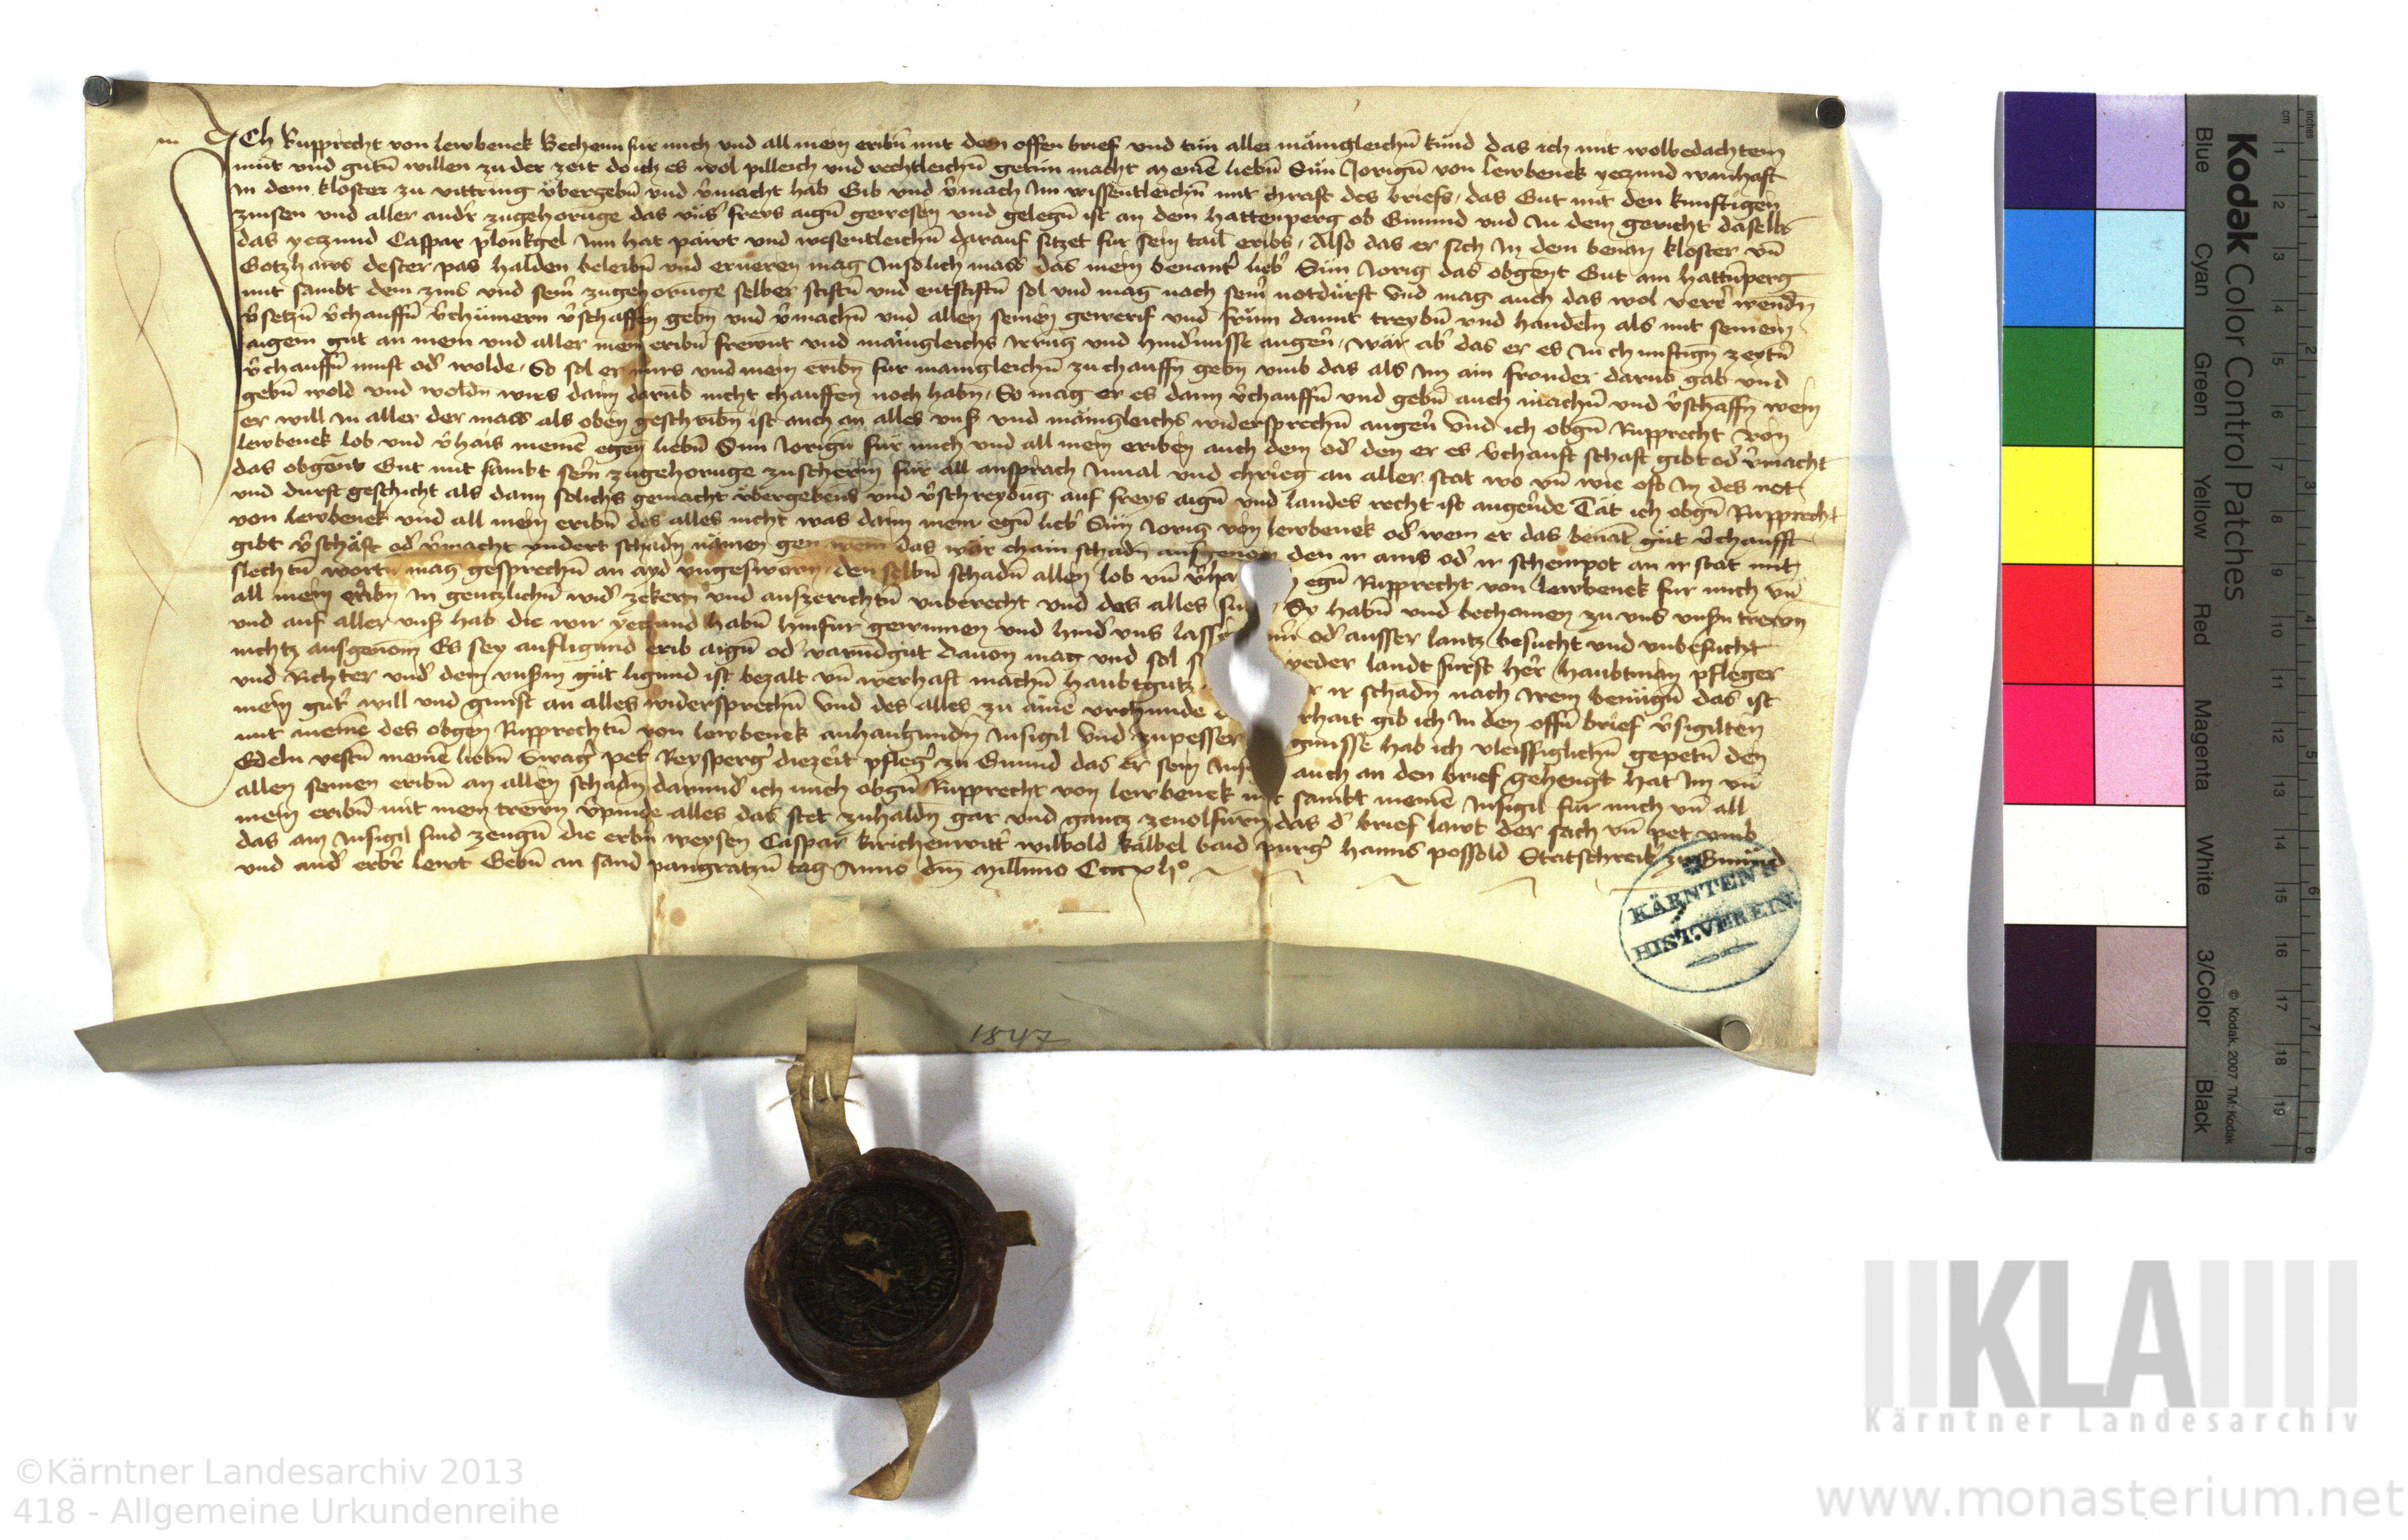 Ich Rupprecht von Lewbenek Vechenn fur mich vnd all mein eribn̄ mit dem offen brief vnd tün aller mänigleichn̄ kund das ich mit wolbedachtem
müt vnd gutn̄ willen zu der zeit do ich es wol pilleich vnd rechtleichn̄ getün macht meinē liebn̄ Sün Jorign̄ von Lewbenek yeczund wanhaft
in dem kloster zu vittring v̈bergebn̄ vnd v̄macht hab Gib vnd v̄mach Im wissentleichn̄ mit chraft des briefs / das Gut mit den kunftigen
zinsen vnd aller andr̄ zugehorunge das vns̄ freys aign̄ gewesen vnd gelegn̄ ist an dem hattenperg ob Gmund vnd in dem gericht daselbs
das yeczund Caspar plonkgel Inn hat päwt vnd wesentleichn̄ darauf siczet fur sein tail eribs / Also das er sich In dem benan̄ kloster vn̄
Gotzhaws dester pas halden beleibn̄ vnd erneren mag In solich mass das mein benant̄ lieb̄ Sün Jorig das obgen̄t Gut am hattn̄perg
mit sambt dem zins vnd sein̄ zugehorunge selber stiftn̄ vnd entstiftn̄ sol vnd mag nach sein̄ notdurft vnd mag auch das wol verr̄ wendn̄
v̄setzn̄ v̄chauffn̄ v̄chümern v̄schaffen gebn̄ vnd v̄machn̄ vnd allen seinen gewerif vnd frum damit treybn̄ vnd handeln̄ als mit seinem
aigem gut an mein vnd aller mein eribn̄ frewnt vnd mänigleichs irrung vnd hindn̄usse angeu̇r / wär ab̄ das er es in chunftign̄ zeytn̄
v̄chauffn̄ must od̄ wolde / So sol er vns vnd mein eribn̄ fur mänigleichn̄ zuchauffn̄ gebn̄ vmb das als Im ain fromder darūb gäb vnd
gebn̄ wold vnd woldn̄ wirs dann darūb nicht chauffen noch habn̄ / So mag er es dann v̄chauffn̄ vnd gebn̄ auch machn̄ vnd v̄schaffn̄ wem
er will in aller der mass als oben geschribn̄ ist auch an alles vns̄ vnd mänigleichs widersprechn̄ angeu̇r Vnd ich obgn̄ Rupprecht von
Lewbenek lob vnd v̄hais meinē egen̄ liebn̄ Sün Jorign̄ fur mich vnd all mein eriben auch dem od̄ den er es v̄chauft schaft gibt od̄ v̄macht
das obgen̄t Gut mit sambt sein̄ zugehorunge zuscherm̄ fur all ansprach Inual vnd chrieg an aller stat wo vn̄ wie oft In des not
vnd durft geschicht als dann solichs gemacht v̈bergebens vnd v̄schreybūg auf freys aign̄ vnd landes recht ist angeu̇rde Tät ich obgn̄ Rupprecht
von Lewbenek vnd all mein eribn̄ des alles nicht was dann mein egn̄ lieb̄ Sün Jorig von Lewbenek od̄ wem er das benāt gut v̄chaufft
gibt v̄schäft od̄ v̄macht yndert schadn̄ nämen gen wem das wär chain schadn̄ ausgenom den ir ains od̄ ir schempot an ir stat mit
slechtn̄ wortn̄ mag gesprechn̄ an ayd vngesworn / den selbn̄ schadn̄ allen lob vn̄ v̄ha egn̄ Rupprecht von Lewbenek fur mich vn̄
all mein eribn̄ In gentzlichn̄ wid̄ zekern vnd auszerichtn̄ vnberecht vnd des alles Sy habn̄ vnd bechomen zu vns vnsn̄ trewn
vnd auf aller vns̄ hab die wir yeczund habn̄ hinfur gewinnen vnd hind̄ vns lassn̄ od̄ ausser lantz besucht vnd vnbesucht
nichtz ausgenom̄ Es sey aufligund erib aign̄ od̄ varundgut dauon mag vnd sol yeder landtfurst her̄ haubtman pfleger
vnd Richter vnd̄ dem vnsm̄ gut ligund ist bezalt vn̄ werhaft machn̄ haubtgutz ir schadn̄ nach irem benügn̄ das ist
mein gut̄ will vnd gunst an alles widersprechn̄ Vnd des alles zu ainē vrchunde rhait gib ich In den offn̄ brief v̄sigilten
mit meinē des obgen̄ Rupprechtn̄ von Lewbenek anhangundn̄ Insigil Vnd zupesser gnusse hab ich vleissiglichn̄ gepetn̄ den
Edeln vestn̄ meinē liebn̄ Swaḡ pet̄ Reysperḡ diezeit pfleḡ zu Gmund das er sein auch an den brief gehengt hat Im vn̄
allen seinen eribn̄ an allen schadn̄ darund̄ ich mich obgn̄ Rupprecht von Lewbenek mit sambt meinē Insigil fur mich vn̄ all
mein eribn̄ mit mein trewn v̄pinde alles das stet zuhaldn̄ gar vnd gantz zeuolfurn̄ das d̄ brief lawt der sach vn̄ pet vmb
das am Insigil sind zeugn̄ die erbn̄ weysen Caspar kirichenwirt̄ wilbold kälbel baid purḡ hanns possold Statschreib̄ zu Gmünd
vnd and̄ erbr̄ lewt Gebn̄ an sand pangratzn̄ tag Anno dm̄ Millimo Cccc xlio
KÄRNTEN'S
HIST. VEREIN.
1847
Kodak Color Control Patches
Blue Cyan Green Yellow Red Magenta White 3/Color Black
© Kodak, 2007 TM: Kodak
cm 1 2 3 4 5 6 7 8 9 10 11 12 13 14 15 16 17 18 19
inches 1 2 3 4 5 6 7 8
KLA
Kärntner Landesarchiv
©Kärntner Landesarchiv 2013
418 - Allgemeine Urkundenreihe
www.monasterium.net